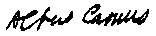 Albert Camus